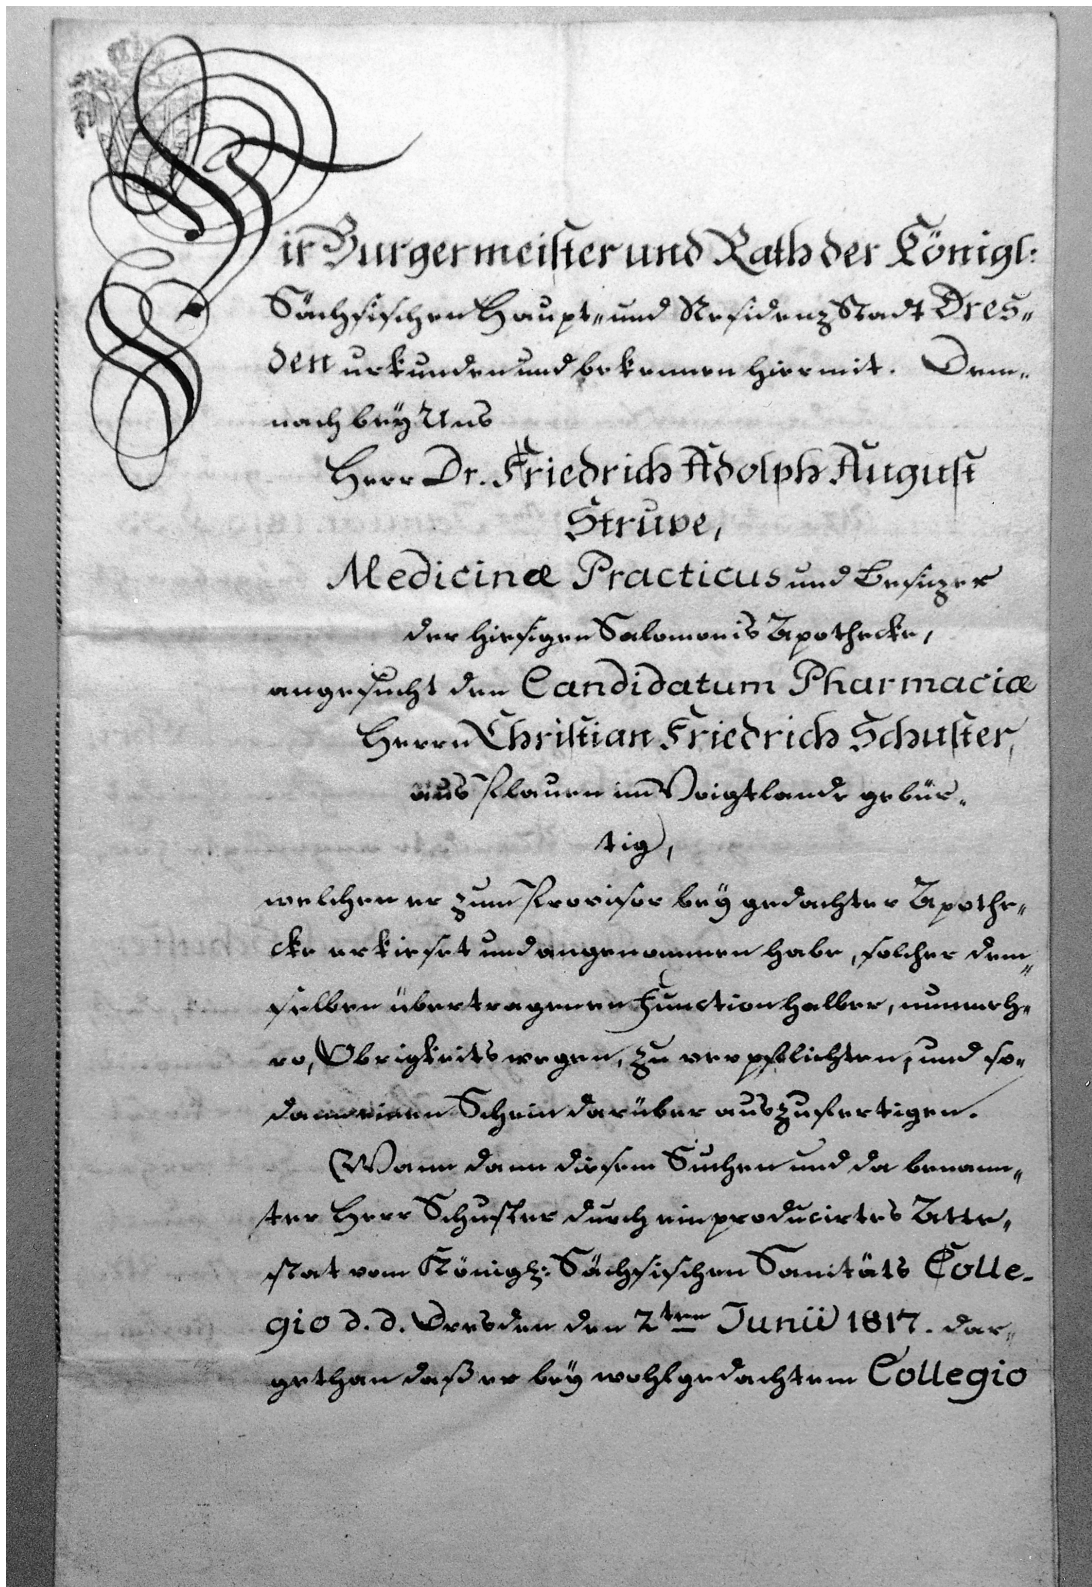 Wir Burgermeister und Rath der Königl:
Sächsischen Haupt- und Residenz Stadt Dres-
den urkunden und bekennen hiermit. Dem-
nach beÿ Uns
Herr Dr. Friedrich Adolph August
Struve,
Medicinæ Practicus und Besizer
der hiesigen Salomonis Apothecke,
angesucht den Candidatum Pharmaciæ
Herrn Christian Friedrich Schuster,
aus Plauen im Voigtlande gebür-
tig,
welchen er zum Provisor beÿ gedachter Apothe-
cke erkieset und angenommen habe, solcher dem-
selben übertragenen Function halber, nunmeh-
ro, Obrigkeitswegen, zu verpflichten, und so-
dann einen Schein darüber auszufertigen.
Wann dann diesem Suchen und da benann-
ter Herr Schuster durch ein producirtes Atte-
stat vom Königl: Sächsischen Sanitäts Colle-
gio d. d. Dresden den 2ten Junii 1817. dar-
gethan daß er beÿ wohlgedachtem Collegio